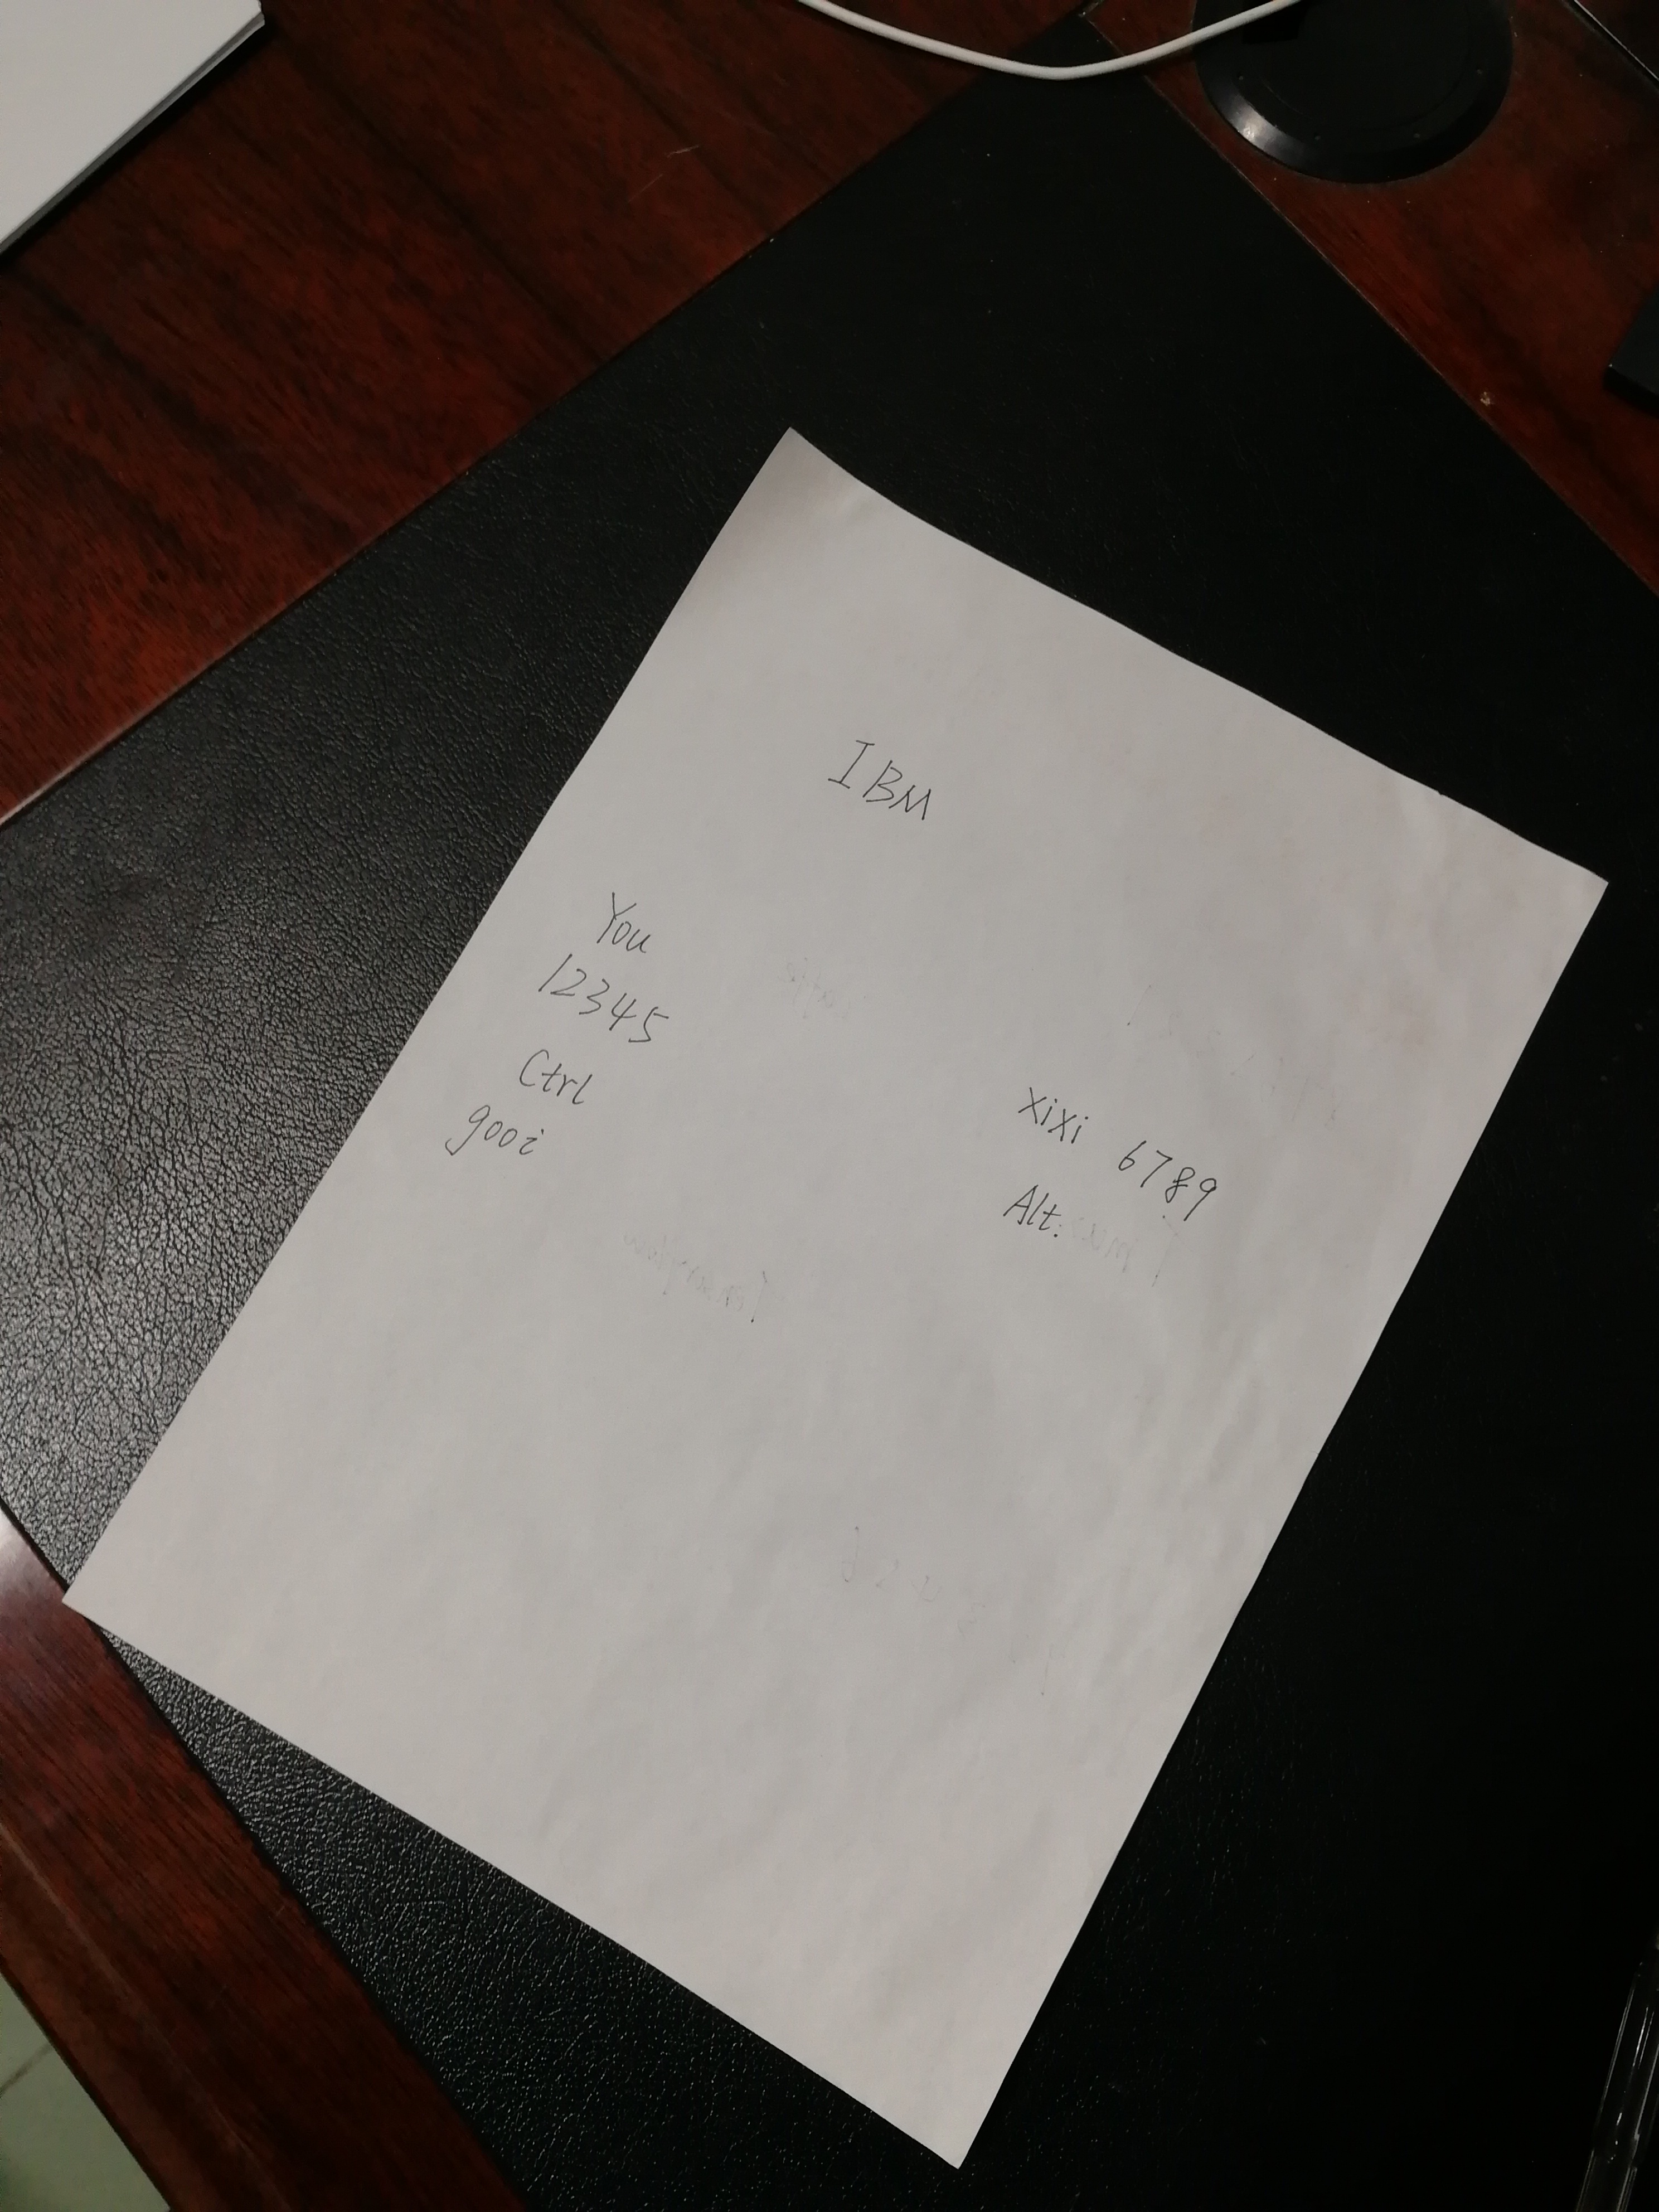 IBM
You
12345
Ctrl
gooi
xixi 6789
Alt.